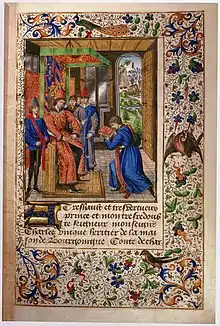 Treshault et tresvertueux
prince et mon tresredoub
te seigneur monseignr
Charles unicque heritier de la mai
son de Bourgoingne Conte de char